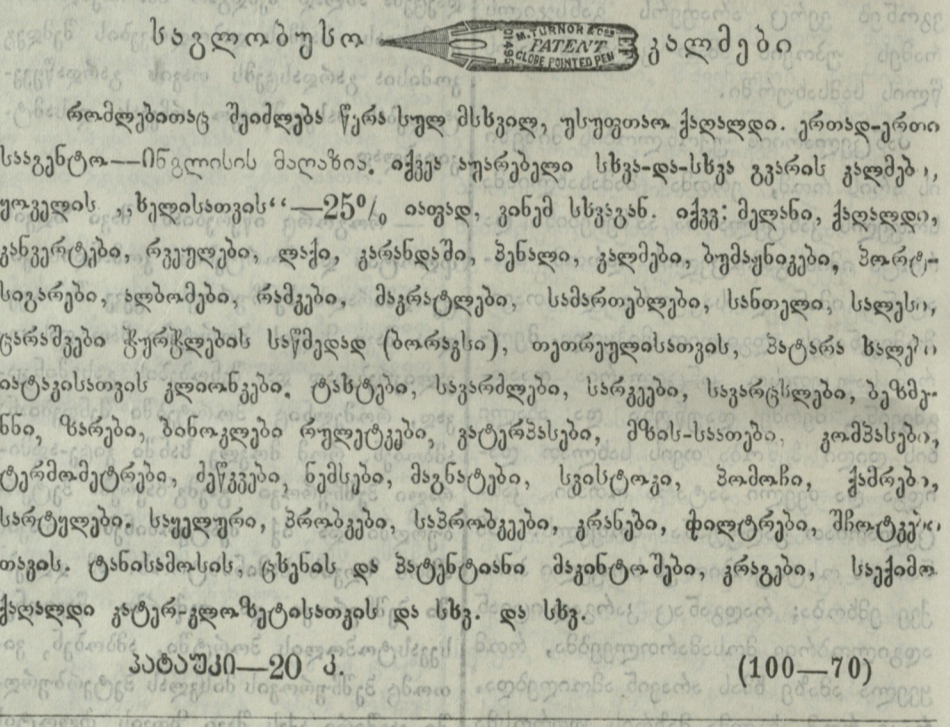 საგლობუსო M. TURNOR & Cos PATENT GLOBE POINTED PEN EF 01495 კალმები
რომლებითაც შეიძლება წერა სულ მსხვილ, უსუფთაო ქაღალდი. ერთად-ერთი
სააგენტო—ინგლისის მაღაზია. იქვეა აუარებელი სხვა-და-სხვა გვარის კალმები,
ყოველის „ხელისათვის“—25% იაფად, ვინემ სხვაგან. იქვე: მელანი, ქაღალდი,
კანვერტები, რვეულები, ლაქი, კარანდაში, პენალი, კალმები, ბუმაჟნიკები, პორტ-
სიგარები, ალბომები, რამკები, მაკრატლები, სამართებლები, სანთელი, სალესი,
ცარაშვები ჭურჭლების საწმედად (ბორაგსი), თეთრეულისათვის, პატარა ხალები
იატაკისათვის კლიონკები. ტახტები, სავარძლები, სარკეები, სავარცხლები, ბეზმე-
ნნი, ზარები, ბინოკლები რულეტკები, ვატერპასები, მზის-საათები, კომპასები,
ტერმომეტრები, ბეწკვები, ნემსები, მაგნატები, სვისტოკი, პომოჩი, ქამრები,
სარტულები. საყელური, პრობკები, საპრობკეები, კრანები, ფილტრები, შჩოტკები
თავის. ტანისამოსის, ცხენის და პატენტიანი მაკინტოშები, კრაგები, საექიმო
ქაღალდი ვატერ-კლოზეტისათვის და სხვ. და სხვ.
პატაუკი—20 კ. (100—70)